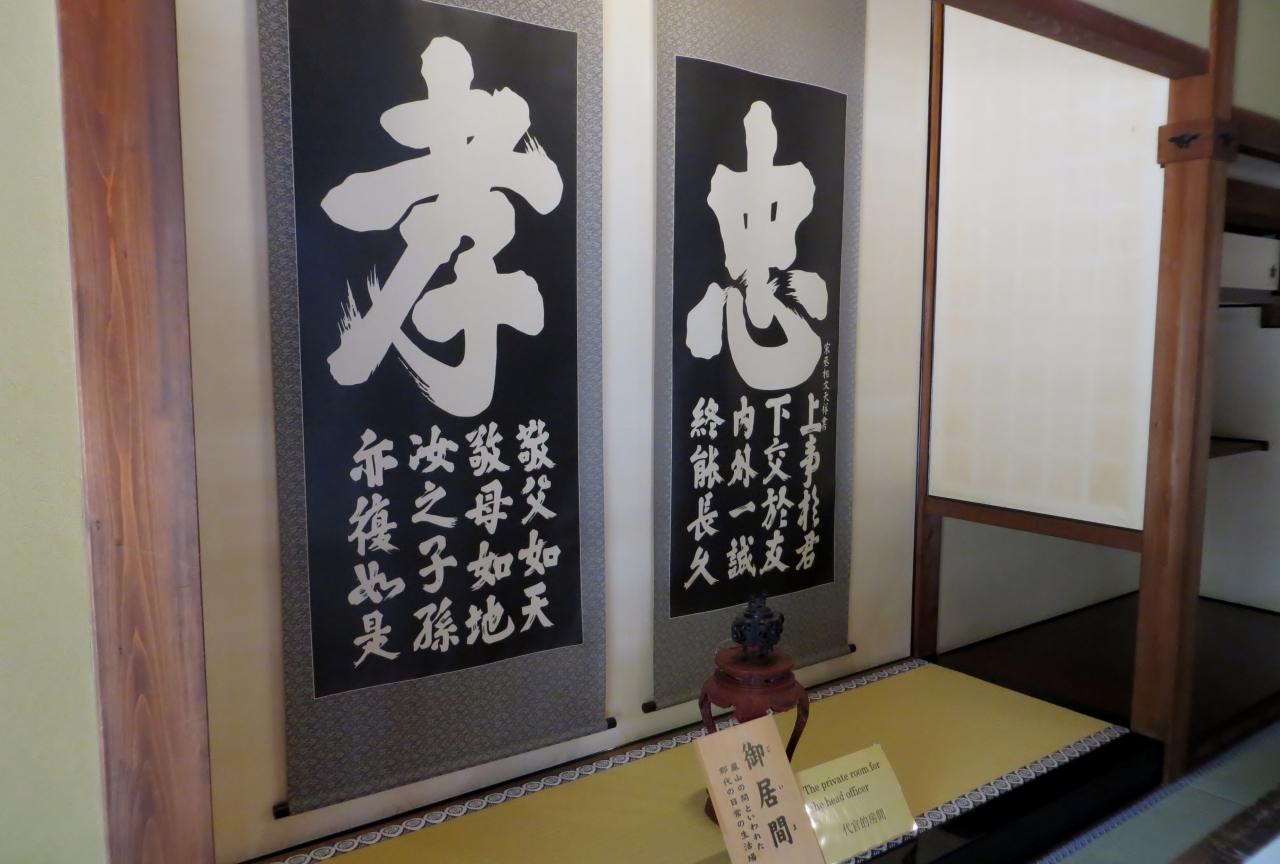 忠
宋丞相文天祥書
上事於君
下交於友
内外一誠
終能長久
孝
敬父如天
敬母如地
汝之子孫
亦復如是
御居間
嵐山の間といわれた
郡代の日常の生活場
The private room for
the head officer
代官的房間